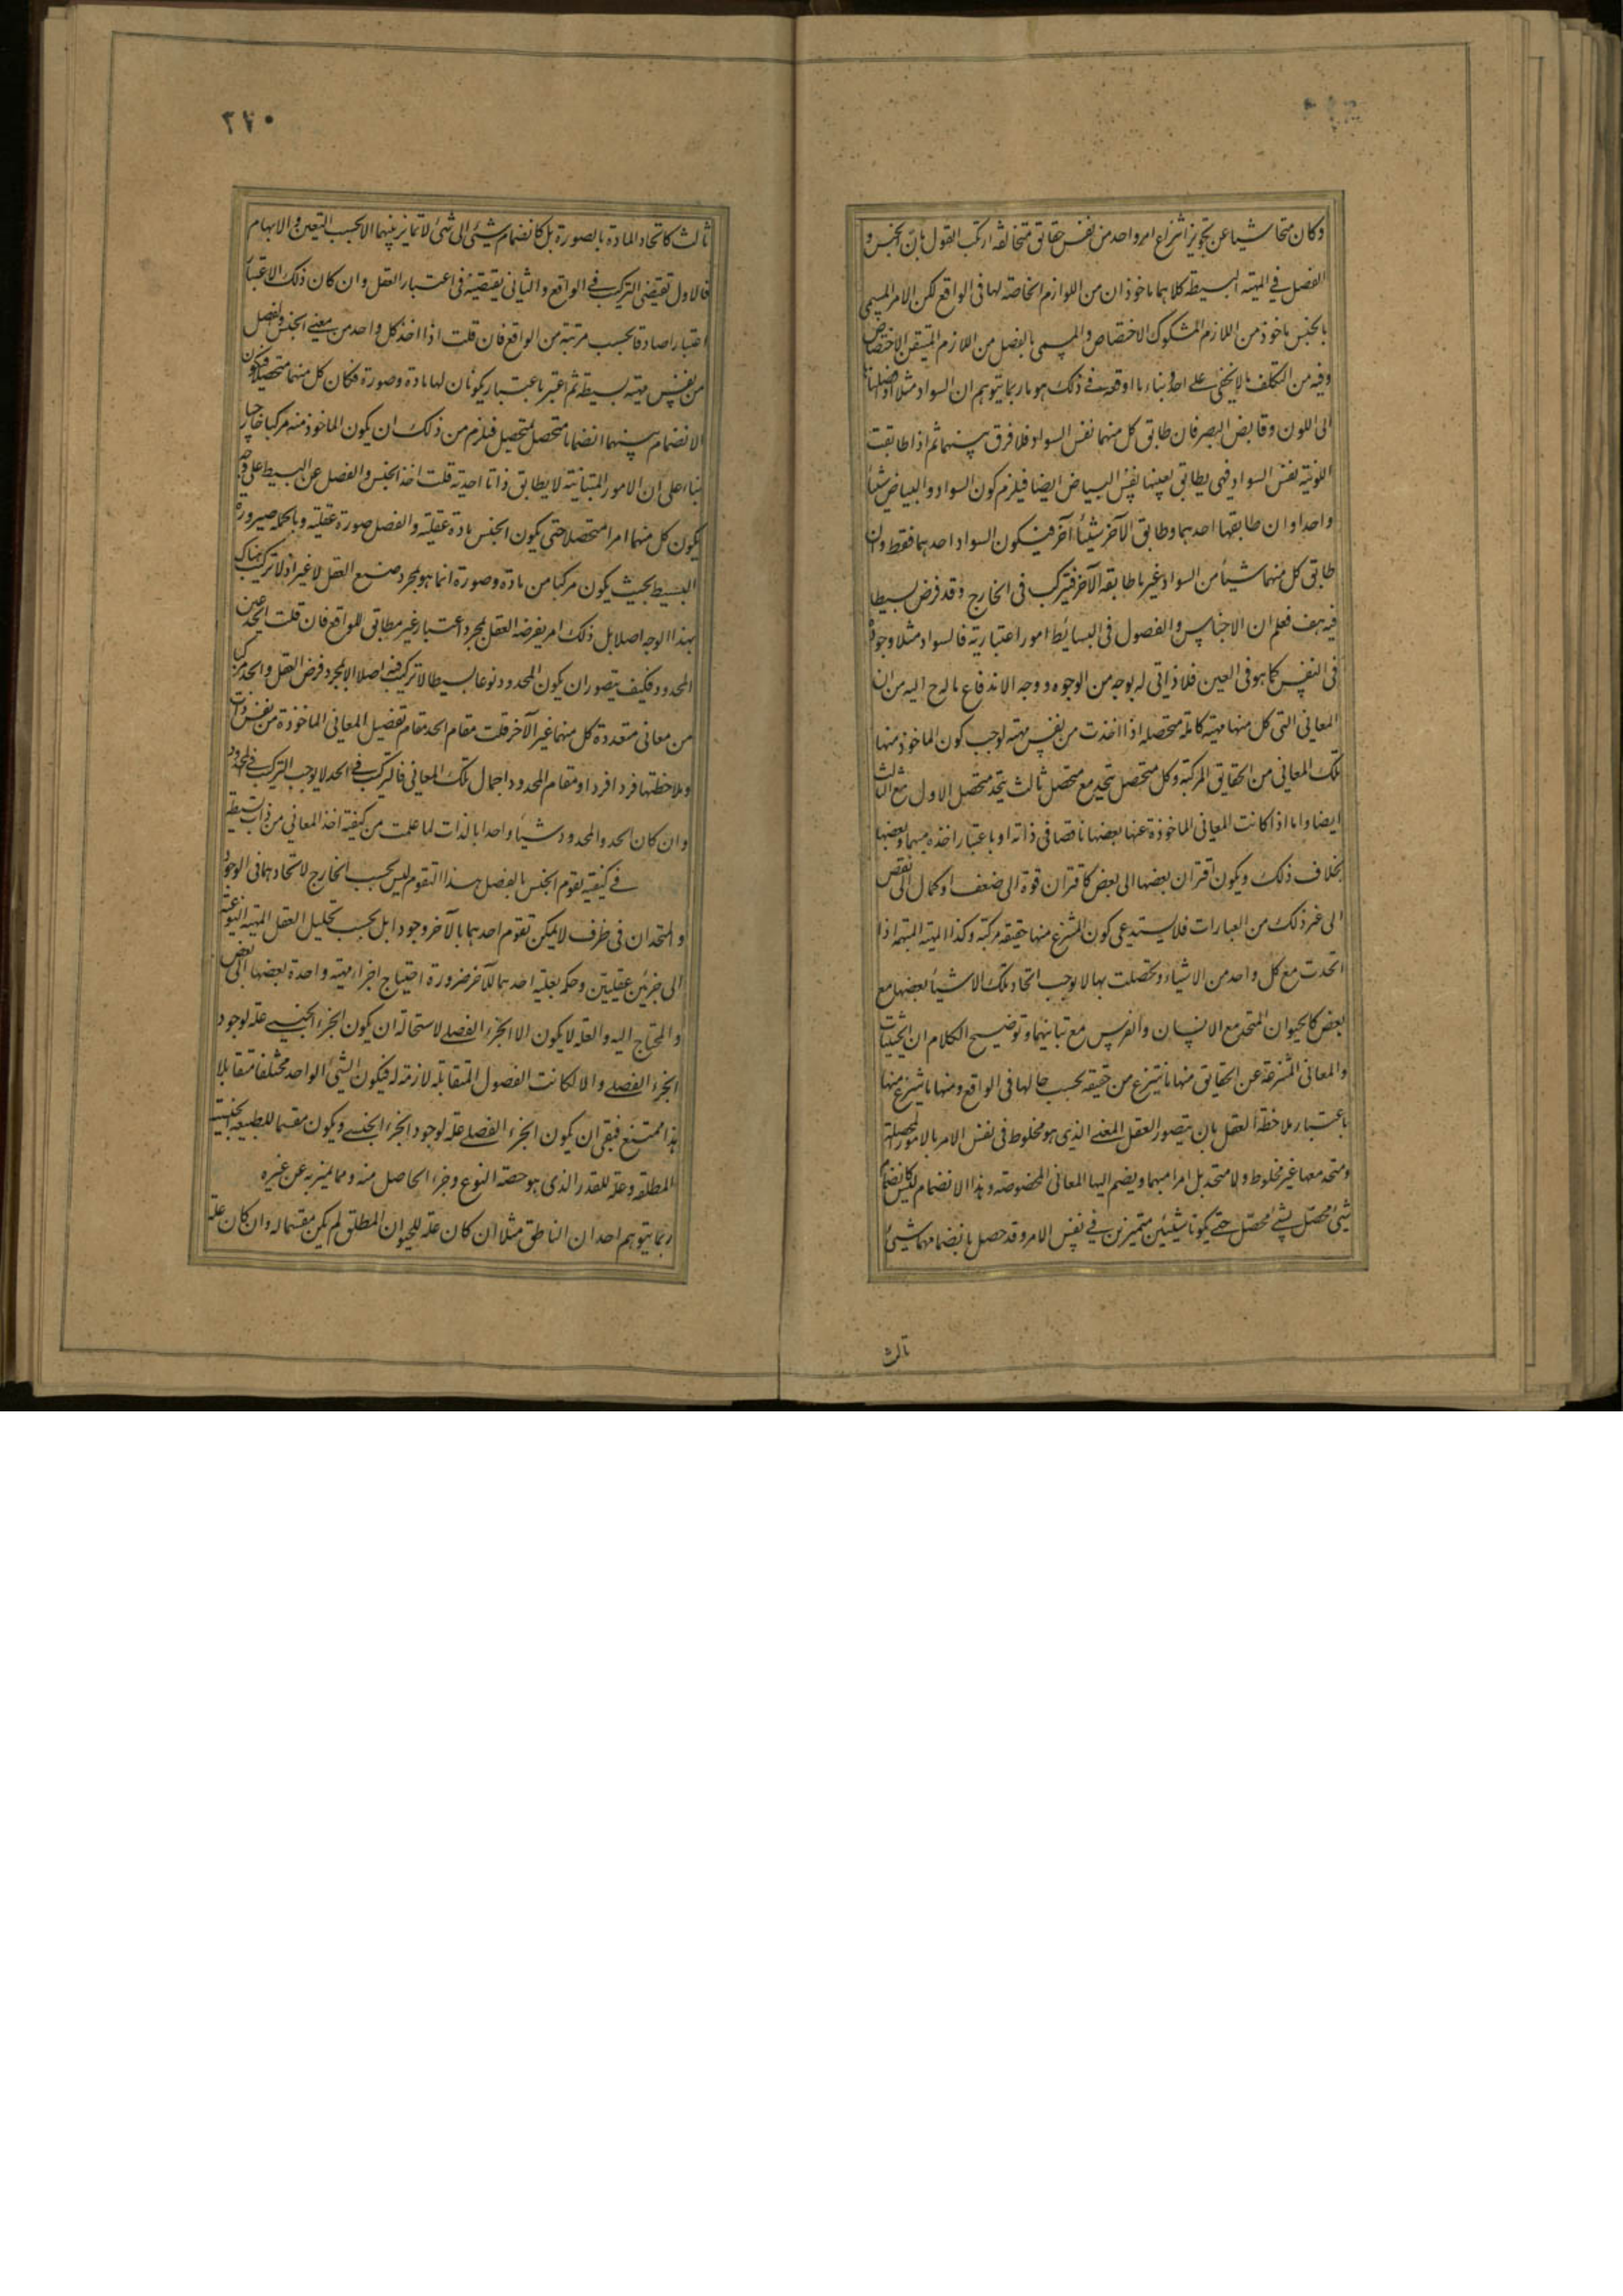 وكان متحاشيا عن تجويز انتزاع امر واحد من نفس حقايق متخالفة ارتكب القول بان الجنس و
الفصل فى المهية البسيطة كلاهما ماخوذان من اللوازم الخاصة لها فى الواقع لكن الامر المسمى
بالجنس ماخوذ من اللازم المشكوك الاختصاص والمسمى بالفصل من اللازم المتيقن الاختصاص
وفيه من التكلف ما لا يخفى على احد وبناء ما اوقعه فى ذلك هو ما ربما يتوهم ان السواد مثلا اذا
الى اللون وقابض البصر فان طابق كل منهما نفس السواد فلا فرق بينهما ثم اذا طابقت
اللونية نفس السواد فهى يطابق بعينها نفس البياض ايضا فيلزم كون السواد والبياض شيئا
واحدا وان طابقها احدهما وطابق الآخر شيئا آخر فيكون السواد احدهما فقط وان
طابق كل منهما شيئا من السواد غير ما طابقه الآخر فيتركب فى الخارج وقد فرض بسيطا
فيه هف فعلم ان الاجناس والفصول فى البسائط امور اعتبارية فالسواد مثلا وجوده
فى النفس كما هو فى العين فلا ذاتى له بوجه من الوجوه ووجه الاندفاع ما لوح اليه من ان
المعانى التى كل منها مهية كاملة متحصلة اذا اخذت من نفس مهية لوجب كون الماخوذ منها
تلك المعانى من الحقايق المركبة وكل متحصل يتحد مع متحصل ثالث يتحد متحصل الاول مع الثالث
ايضا واما اذا كانت المعانى الماخوذة عنها بعضها ناقصا فى ذاته او باعتبار اخذه مبهما وبعضها
بخلاف ذلك ويكون اقتران بعضها الى بعض كاقتران قوة الى ضعف او كمال الى نقص
الى غير ذلك من العبارات فلا يستدعى كون المنتزع منها حقيقة مركبة وكذا المهية المبهمة اذا
اتحدت مع كل واحد من الاشياء وتحصلت بها لا يوجب اتحاد تلك الاشياء بعضها مع
بعض كالحيوان المتحد مع الانسان والفرس مع تباينهما وتوضيح الكلام ان الحيثيات
والمعانى المنتزعة عن الحقايق منها ما ينتزع من حقيقة بحسب حالها فى الواقع ومنها ما ينتزع منها
باعتبار ملاحظة العقل بان يتصور العقل المعنى الذى هو مخلوط فى نفس الامر بالامور المحصلة
ومتحد معها غير مخلوط ولا متحد بل امرا مبهما ويضم اليها المعانى المخصوصة وهذا الانضمام ليس كانضمام
شىء محصل بشىء محصل حتى يكونا شيئين متميزين فى نفس الامر وقد حصل بانضمامهما شىء
ثالث
٣٧٠
ثالث كاتحاد المادة بالصورة بل كانضمام شىء الى شىء لا تمايز بينهما الا بحسب التعين والابهام
فالاول يقتضى التركب فى الواقع والثانى يقتضيه فى اعتبار العقل وان كان ذلك الاعتبار
اعتبارا صادقا بحسب مرتبة من الواقع فان قلت اذا اخذ كل واحد من معنى الجنس والفصل
من نفس مهية بسيطة ثم اعتبر باعتبار يكونان لها مادة وصورة فكان كل منهما متحصلا فيكون
الانضمام بينهما انضمام متحصل بمتحصل فيلزم من ذلك ان يكون الماخوذ منه مركبا خارجيا
بناء على ان الامور المتباينة لا يطابق ذاتا احدية قلت اخذ الجنس والفصل عن البسيط على وجه
يكون كل منهما امرا متحصلا حتى يكون الجنس مادة عقلية والفصل صورة عقلية وبالجملة صيرورة
البسيط بحيث يكون مركبا من مادة وصورة انما هو بمجرد صنع العقل لا غير اذ لا تركب هناك
بهذا الوجه اصلا بل ذلك امر يفرضه العقل بمجرد اعتبار غير مطابق للواقع فان قلت الحد عين
المحدود فكيف يتصور ان يكون المحدود نوعا بسيطا لا تركب فيه اصلا الا بمجرد فرض العقل والحد مركب
من معانى متعددة كل منهما غير الآخر قلت مقام الحد مقام تفصيل المعانى الماخوذة من نفس ذات
وملاحظتها فردا فردا ومقام المحدود اجمال تلك المعانى فالتركب فى الحد لا يوجب التركب فى المحدود
وان كان الحد والمحدود شيئا واحدا بالذات لما علمت من كيفية اخذ المعانى من ذات بسيطة
فى كيفية تقوم الجنس بالفصل هذا التقوم ليس بحسب الخارج لاتحادهما فى الوجود
والمتحدان فى ظرف لا يمكن تقوم احدهما بالآخر وجودا بل بحسب تحليل العقل المهية النوعية
الى جزئين عقليين وحكمه بعلية احدهما للآخر ضرورة احتياج اجزاء مهية واحدة بعضها الى بعض
والمحتاج اليه والعلة لا يكون الا الجزء الفصلى لاستحالة ان يكون الجزء الجنسى علة لوجود
الجزء الفصلى والا لكانت الفصول المتقابلة لازمة له فيكون الشىء الواحد مختلفا متقابلا
هذا ممتنع فبقى ان يكون الجزء الفصلى علة لوجود الجزء الجنسى ويكون مقسما للطبيعة الجنسية
المطلقة وعلة للقدر الذى هو حصة النوع وجزء الحاصل منه ومما يتميز به عن غيره
ربما يتوهم احد ان الناطق مثلا ان كان علة للحيوان المطلق لم يكن مقسما له وان كان علة